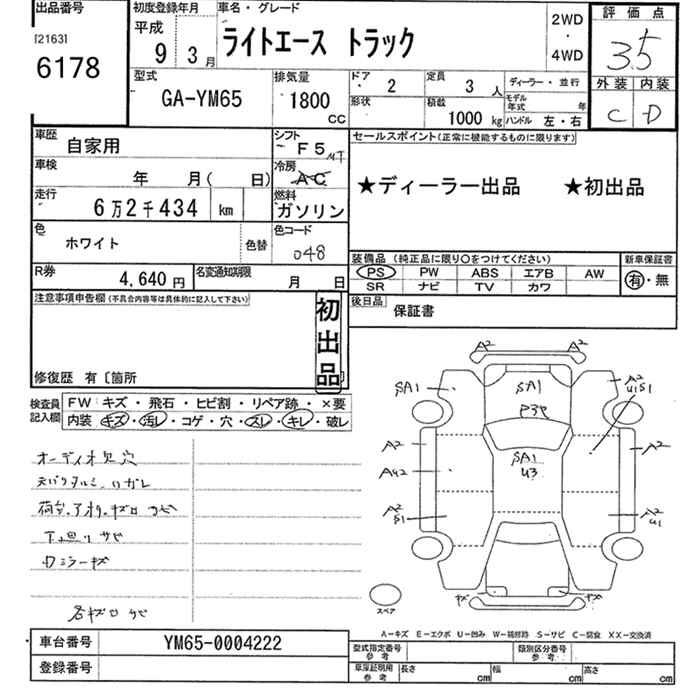 出品番号
[2163]
6178
初度登録年月
平成
9 3月
車名・グレード
ライトエース トラック
2WD
・
4WD
評価点
3.5
外装 内装
C D
型式
GA-YM65
排気量
1800
CC
ドア
・ 2
形状
定員
3 人
積載
1000 kg
ディーラー・並行
モデル年式 年
ハンドル 左・右
車歴
自家用
シフト
F5 MT
車検
年 月( 日)
冷房
AC
走行
6万2千434 km
燃料
ガソリン
色
ホワイト
色替
色コード
048
R券
4,640円
名変通知期限
月 日
セールスポイント(正常に機能するものに限ります)
★ディーラー出品 ★初出品
装備品 (純正品に限り○をつけてください)
PS PW ABS エアB AW
SR ナビ TV カワ
新車保証書
有・無
後日品
保証書
注意事項申告欄(不具合内容等は具体的に記入して下さい)
初出品
修復歴 有〔箇所 〕
検査員記入欄
FW キズ・飛石・ヒビ割・リペア跡・×要
内装 キズ・汚レ・コゲ・穴・スレ・キレ・破レ
オーディオ欠穴
ハガレ
荷台、アオリ、キズ凹 サビ
下廻りサビ
Dミラーキズ
各キズ凹 サビ
A2 A2
SA1 SA1 A2
U1S1
P3P
A2 A2
SA1
U3
AU2
A2
S1
A2
U1
キズ キズ
スペア
A-キズ E-エクボ U-凹み W-補修跡 S-サビ C-腐食 XX-交換済
車台番号
YM65-0004222
登録番号
型式指定番号
参考
類別区分番号
参考
車庫証明用
参考
長さ cm 幅 cm 高さ cm